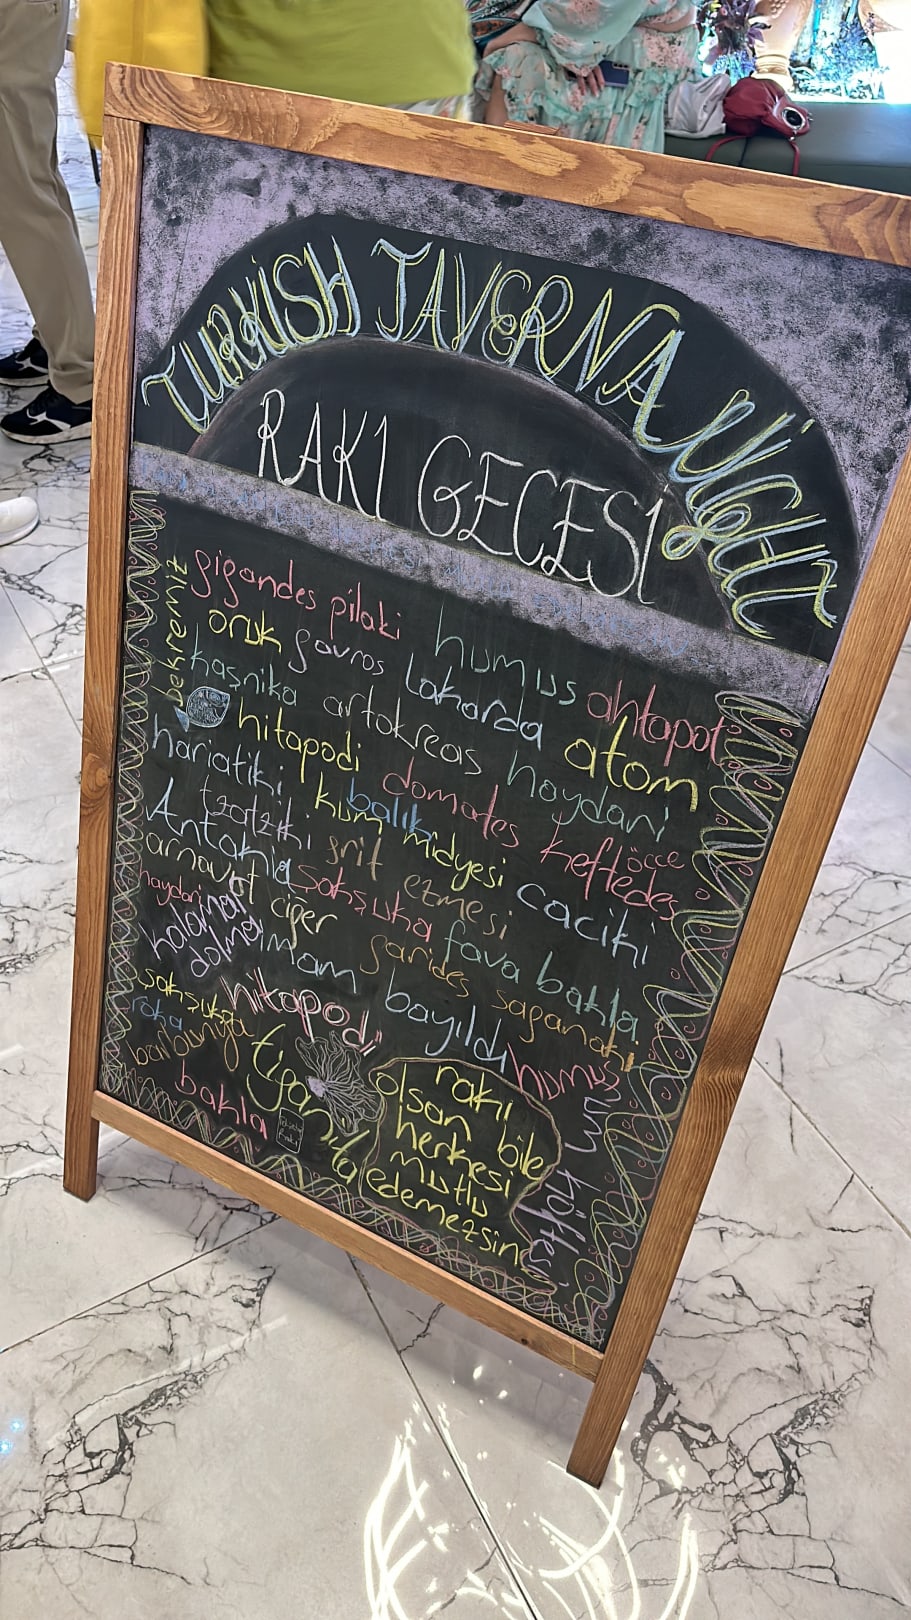 TURKISH TAVERNA NIGHT
RAKI GECESİ
bekremit
gigandes pilaki humus ahtapot
oruk gavros lakerda atom
kaşnika artokreas haydari
hitapodi domates keftedes
hariatiki kum balık midyesi öcce
tzatziki girit ezmesi caciki
Antakya şakşuka fava bakla
arnavut ciğer garides saganaki
haydari
kalamar
dolma
imam bayıldı
hitapodi
humus
şakşuka
roka
barbunya
tiganita
bakla
raki
olsan bile
herkesi
mutlu
edemezsin
köftesi